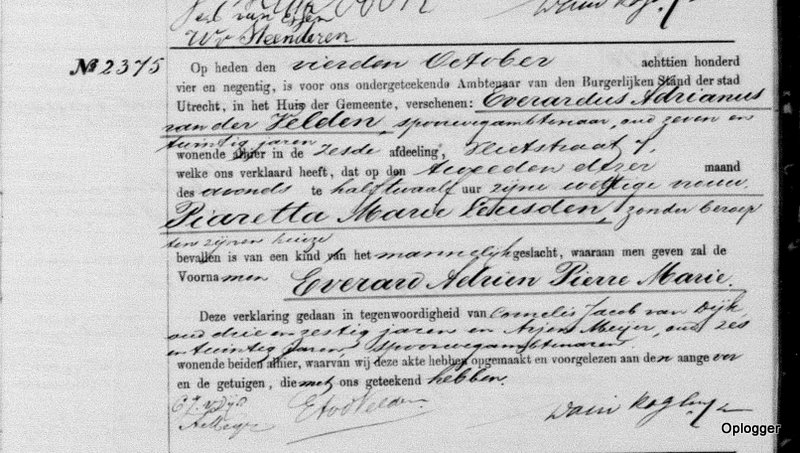 W v Steenderen
№ 2375
Op heden den vierden October achttien honderd
vier en negentig, is voor ons ondergeteekende Ambtenaar van den Burgerlijken Stand der stad
Utrecht, in het Huis der Gemeente, verschenen: Everardus Adrianus
van der Velden, spoorwegambtenaar, oud zeven en
twintig jaren
wonende alhier in de zesde afdeeling,
welke ons verklaard heeft, dat op den tweeden dezer maand
des avonds te half twaalf uur zijne wettige vrouw
Piaretta Marie Leusden, zonder beroep
ten zijnen huize
bevallen is van een kind van het mannelijk geslacht, waaraan men geven zal de
Voornamen Everard Adrien Pierre Marie.
Deze verklaring gedaan in tegenwoordigheid van Cornelis Jacob van Dijk,
oud drie en zestig jaren en Arjen Meijer, oud zes
en twintig jaren, spoorwegambtenaren
wonende beiden alhier, waarvan wij deze akte hebben opgemaakt en voorgelezen aan den aangever
en de getuigen, die met ons geteekend hebben.
C J v Dijk
A Meijer
E A vd Velden
Oplogger